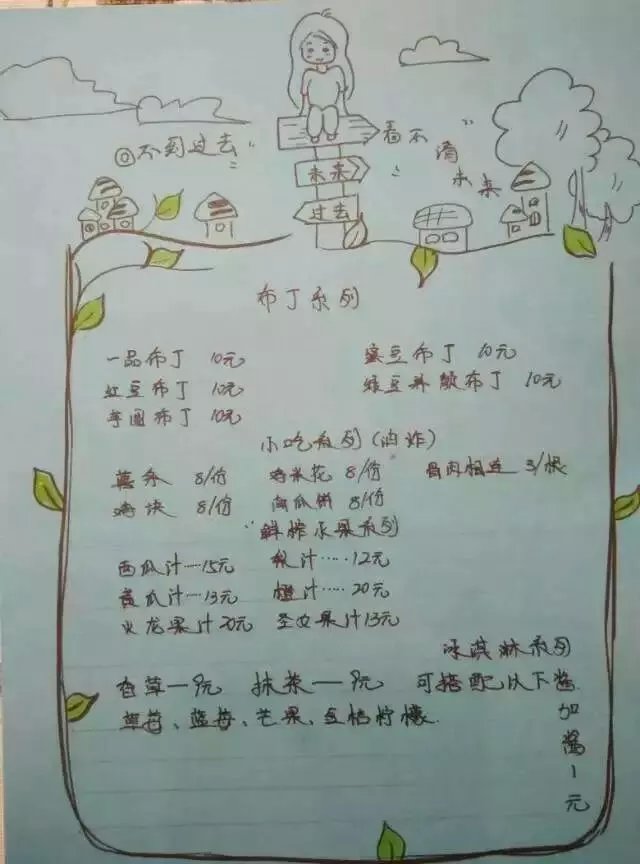 回不到过去"
"看不清未来
未来
过去
布丁系列
一品布丁 10元 蜜豆布丁 10元
红豆布丁 10元 绿豆 布丁 10元
芋圆布丁 10元
小吃系列(油炸)
薯条 8/份 鸡米花 8/份 骨肉相连 3/根
鸡块 8/份 南瓜饼 8/份
"鲜榨水果系列
西瓜汁····15元 梨汁····12元
黄瓜汁···13元 橙汁·····20元
火龙果汁20元 圣女果汁13元
冰淇淋系列
香草— 元 抹茶— 元 可搭配以下酱
草莓、蓝莓、芒果、金桔柠檬
加酱1元